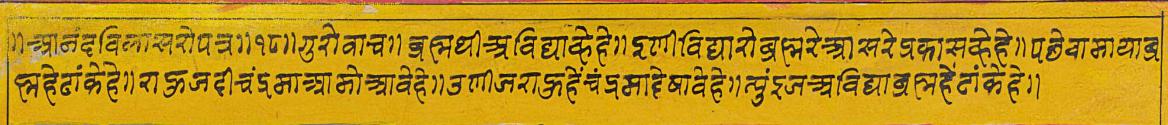 ॥आनंदविलासरोपत्र॥१८॥गुरोवाच॥ब्रह्मथीअविद्याकेहे॥इणीविद्यारोब्रह्मरेआसरेप्रकासकहेहे॥पछेवामायाब्र
ह्महेढांकेहे॥राऊजदीचंद्रमाआमोआवेहे॥उणीजराऊहेंचंद्रमादेषावेहे॥त्युंइजअविद्याब्रह्महेंढांकेंहे॥